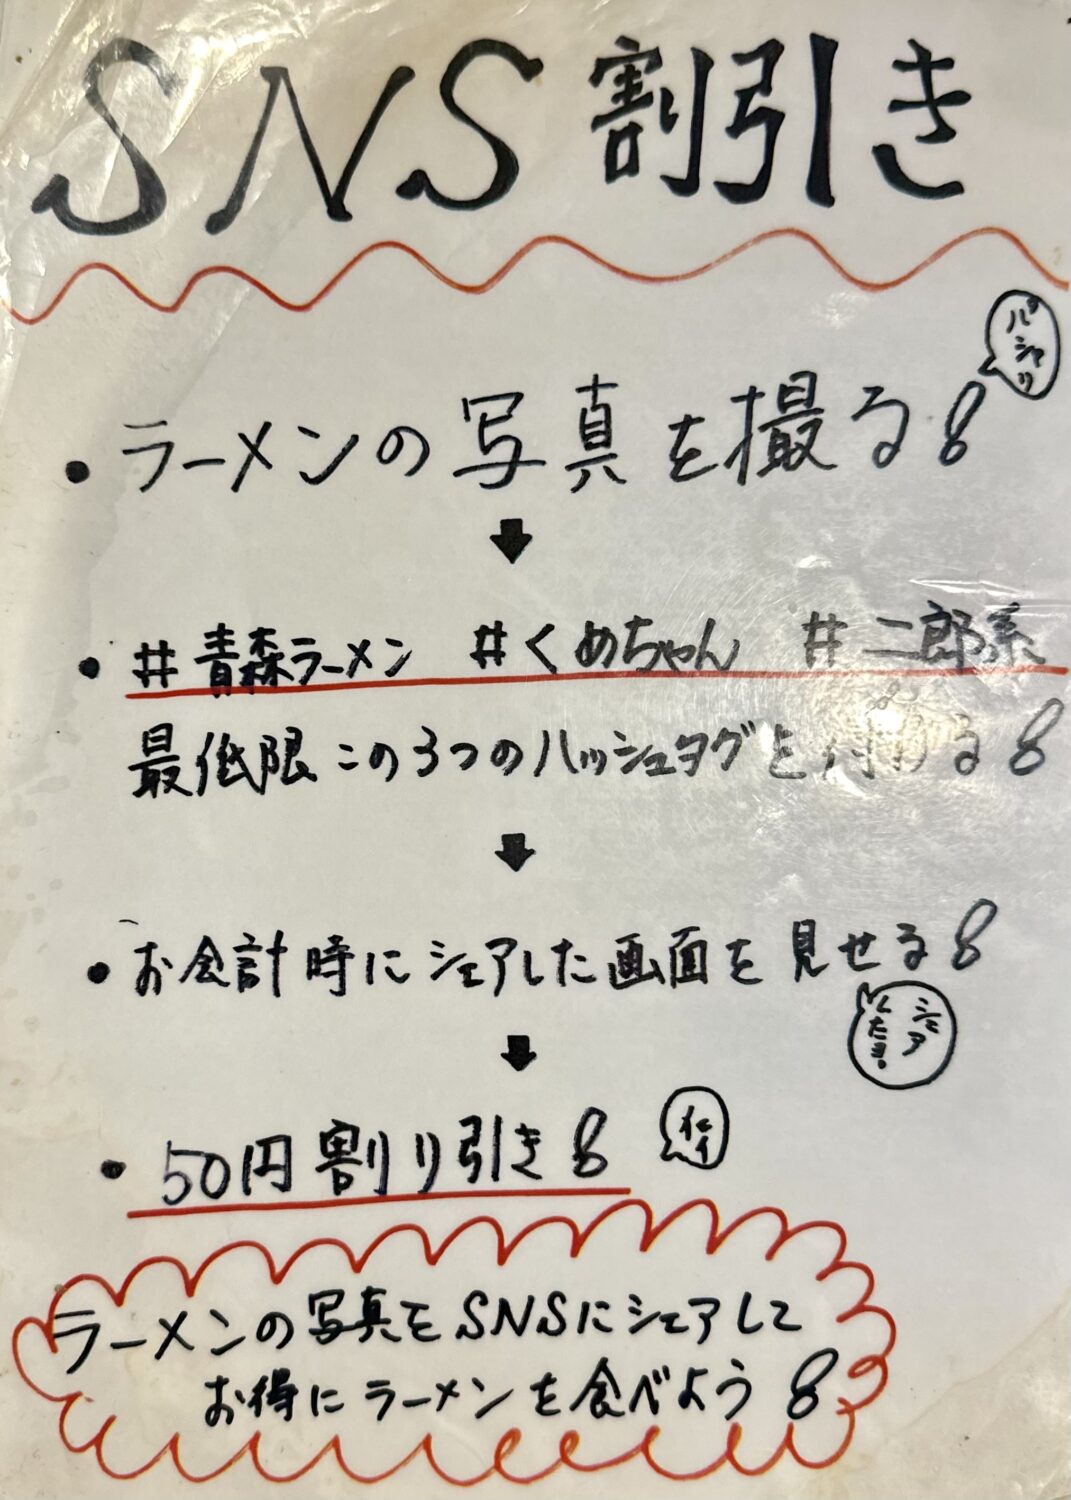 SNS割引き
パシャリ
・ラーメンの写真を撮る!
⬇
・#青森ラーメン #くめちゃん #二郎系
最低限この3つのハッシュタグを付ける!
⬇
・お会計時にシェアした画面を見せる!
シェア
したヨ。
⬇
・50円割り引き!
ラーメンの写真をSNSにシェアして
お得にラーメンを食べよう!